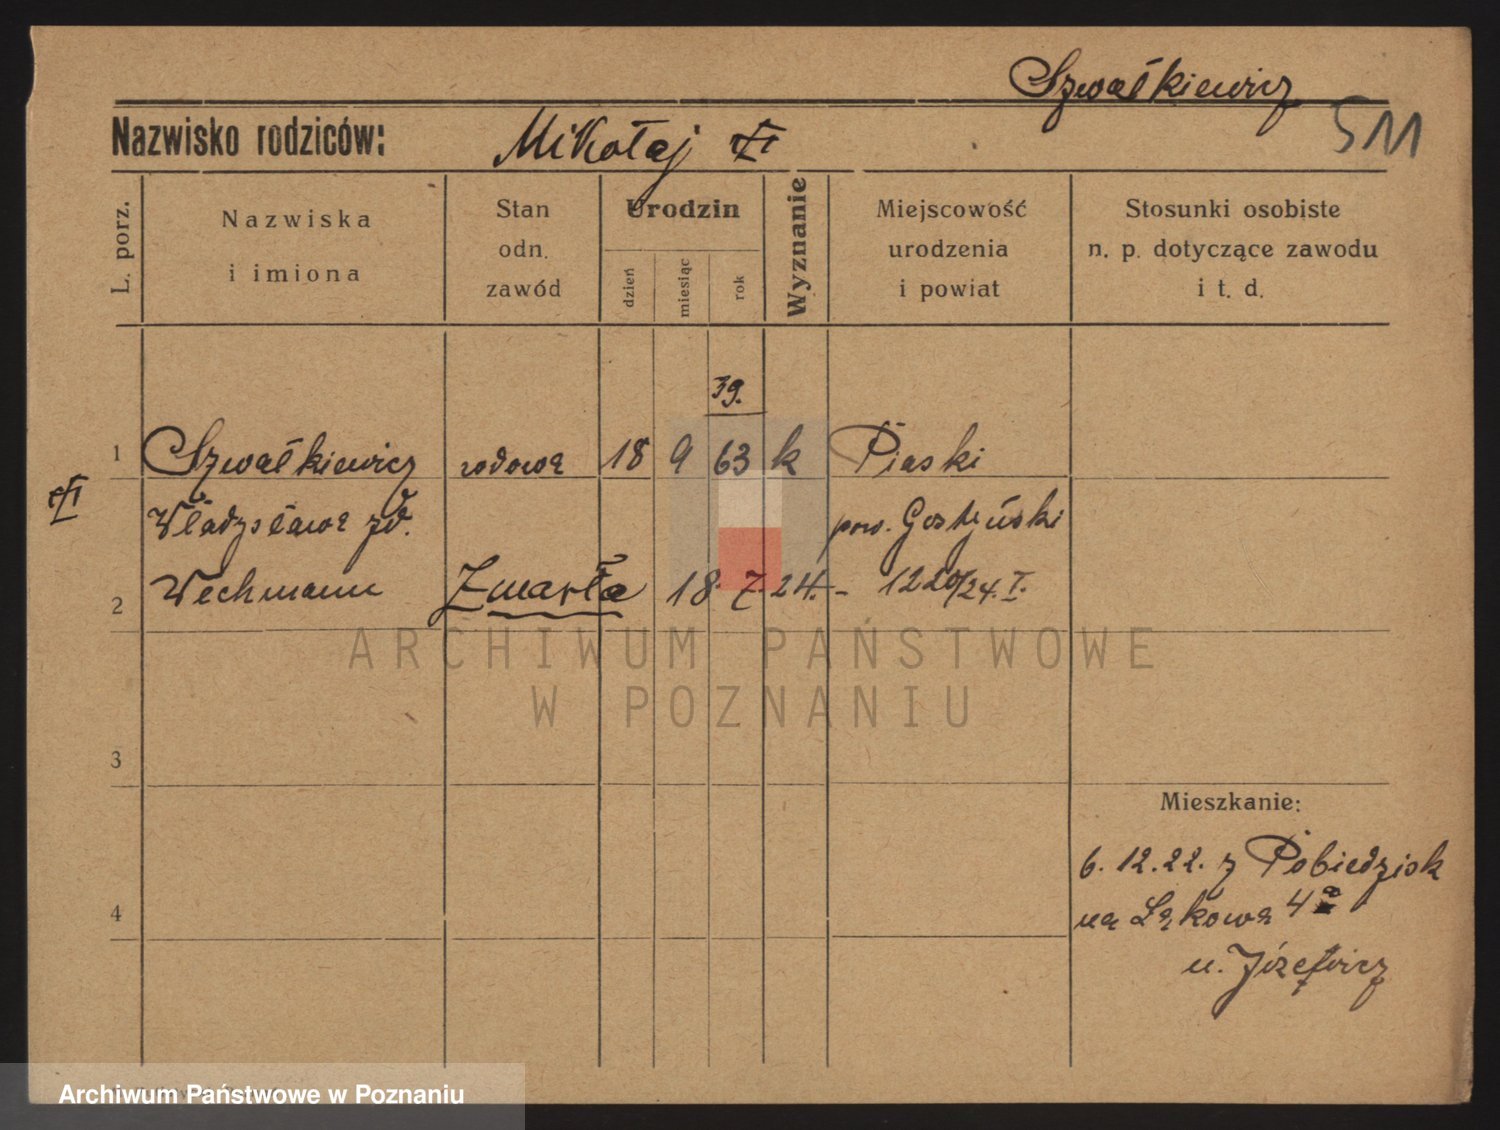 Szwałkiewicz
511
Nazwisko rodziców: Mikołaj
L. porz.
Nazwiska
i imiona
Stan
odn.
zawód
Urodzin
dzień
miesiąc
rok
Wyznanie
Miejscowość
urodzenia
i powiat
Stosunki osobiste
n. p. dotyczące zawodu
i t. d.
39.
1 Szwałkiewicz wdowa 18 9 63 k Piaski
Władysława zd. pow. Gostyński
2 Wechmann Zmarła 18. 7. 24. - 1220/24. I.
3
Mieszkanie:
6. 12. 22. z Pobiedzisk
4
na Łąkowa 4a
u. Józefowicz
ARCHIWUM PAŃSTWOWE
W POZNANIU
Archiwum Państwowe w Poznaniu